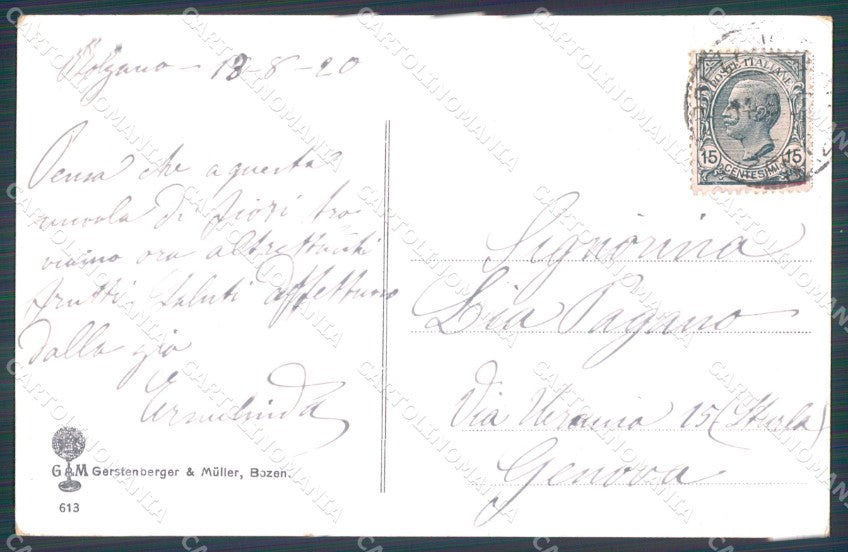 Bolzano - 18-8-20
Pensa che a questa
nuvola di fiori tro
viamo ora altrettanti
frutti. Saluti affettuosi
dalla zia
Ermelinda
POSTE ITALIANE
15 15
CENTESIMI
Signorina
Lia Pagano
Via 15 (Sturla)
Genova
G M Gerstenberger & Müller, Bozen.
613
CARTOLINOMANIA